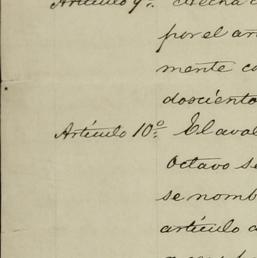 Artículo 9º. Hecha
por el
mente
doscient
Artículo 10º. El aval
Octavo se
se nomb
artículo